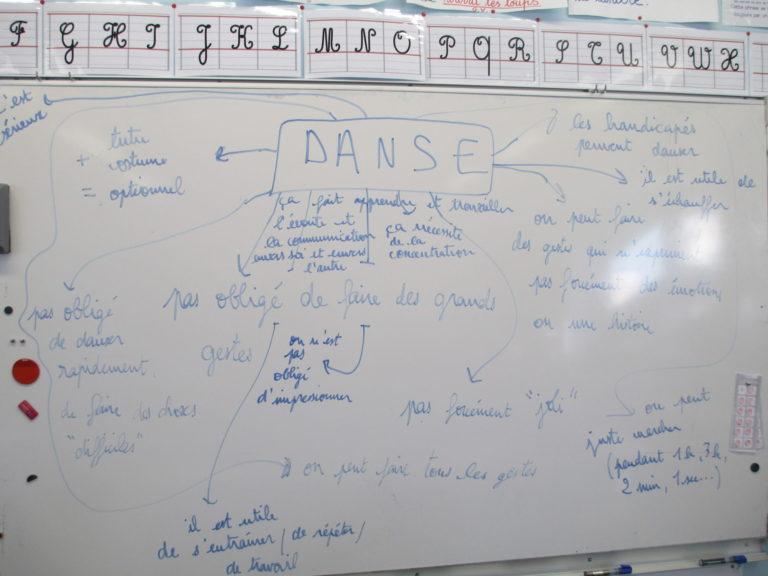 F G H I J K L M N O P Q R S T U V W X
c'est
sérieux
tutu
+ costume
= optionnel
DANSE
les handicapés
peuvent danser
il est utile de
s'échauffer
ça fait apprendre et travailler
l'écoute et
la communication
envers soi et envers
l'autre
ça nécessite
de la
concentration
on peut faire
des gestes qui n'expriment
pas forcément des émotions
ou une histoire
pas obligé
de danser
rapidement,
de faire des choses
"difficiles"
pas obligé de faire des grands
gestes
on n'est
pas
obligé
d'impressionner
pas forcément "joli"
on peut
juste marcher
(pendant 1h, 3h,
2 min, 1 sec...)
on peut faire tous les gestes
il est utile
de s'entraîner / de répéter /
de travail